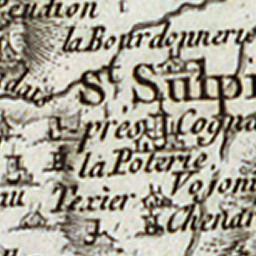 la Bourdonnerie
St. Sulpi
près Cogna
la Poterie
Vojoni
Texier
Chenar